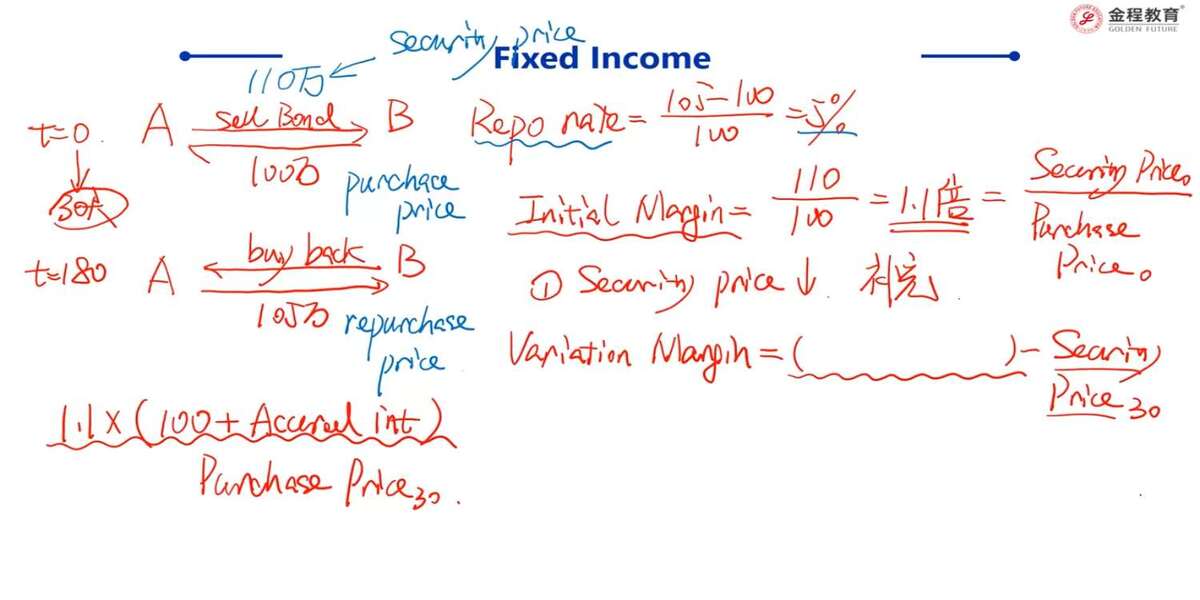 金程教育
GOLDEN FUTURE
Fixed Income
security price
110万
t=0 A sell Bond B
100万
purchace price
30天
t=180 A buy back B
105万
repurchase price
1.1 × (100 + Accured int)
Purchase Price30.
Repo rate = 105-100 / 100 = 5%
Initial Margin = 110 / 100 = 1.1倍 = Security Price0 / Purchase Price0
① Security price ↓. 补充.
Variation Margin = ( ) - Security Price30